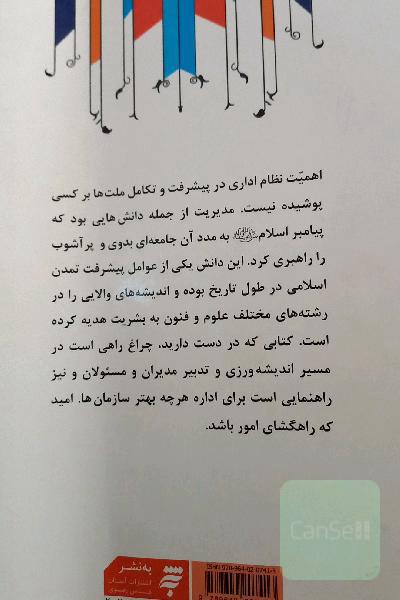 اهمیّت نظام اداری در پیشرفت و تکامل ملت‌ها بر کسی
پوشیده نیست. مدیریت از جمله دانش‌هایی بود که
پیامبر اسلام ﷺ به مدد آن جامعه‌ای بدوی و پرآشوب
را راهبری کرد. این دانش یکی از عوامل پیشرفت تمدن
اسلامی در طول تاریخ بوده و اندیشه‌های والایی را در
رشته‌های مختلف علوم و فنون به بشریت هدیه کرده
است. کتابی که در دست دارید، چراغ راهی است در
مسیر اندیشه‌ورزی و تدبیر مدیران و مسئولان و نیز
راهنمایی است برای اداره هرچه بهتر سازمان‌ها. امید
که راهگشای امور باشد.
CanSell
به‌نشر
انتشارات آستان
قدس رضوی
ISBN 978-964-02-